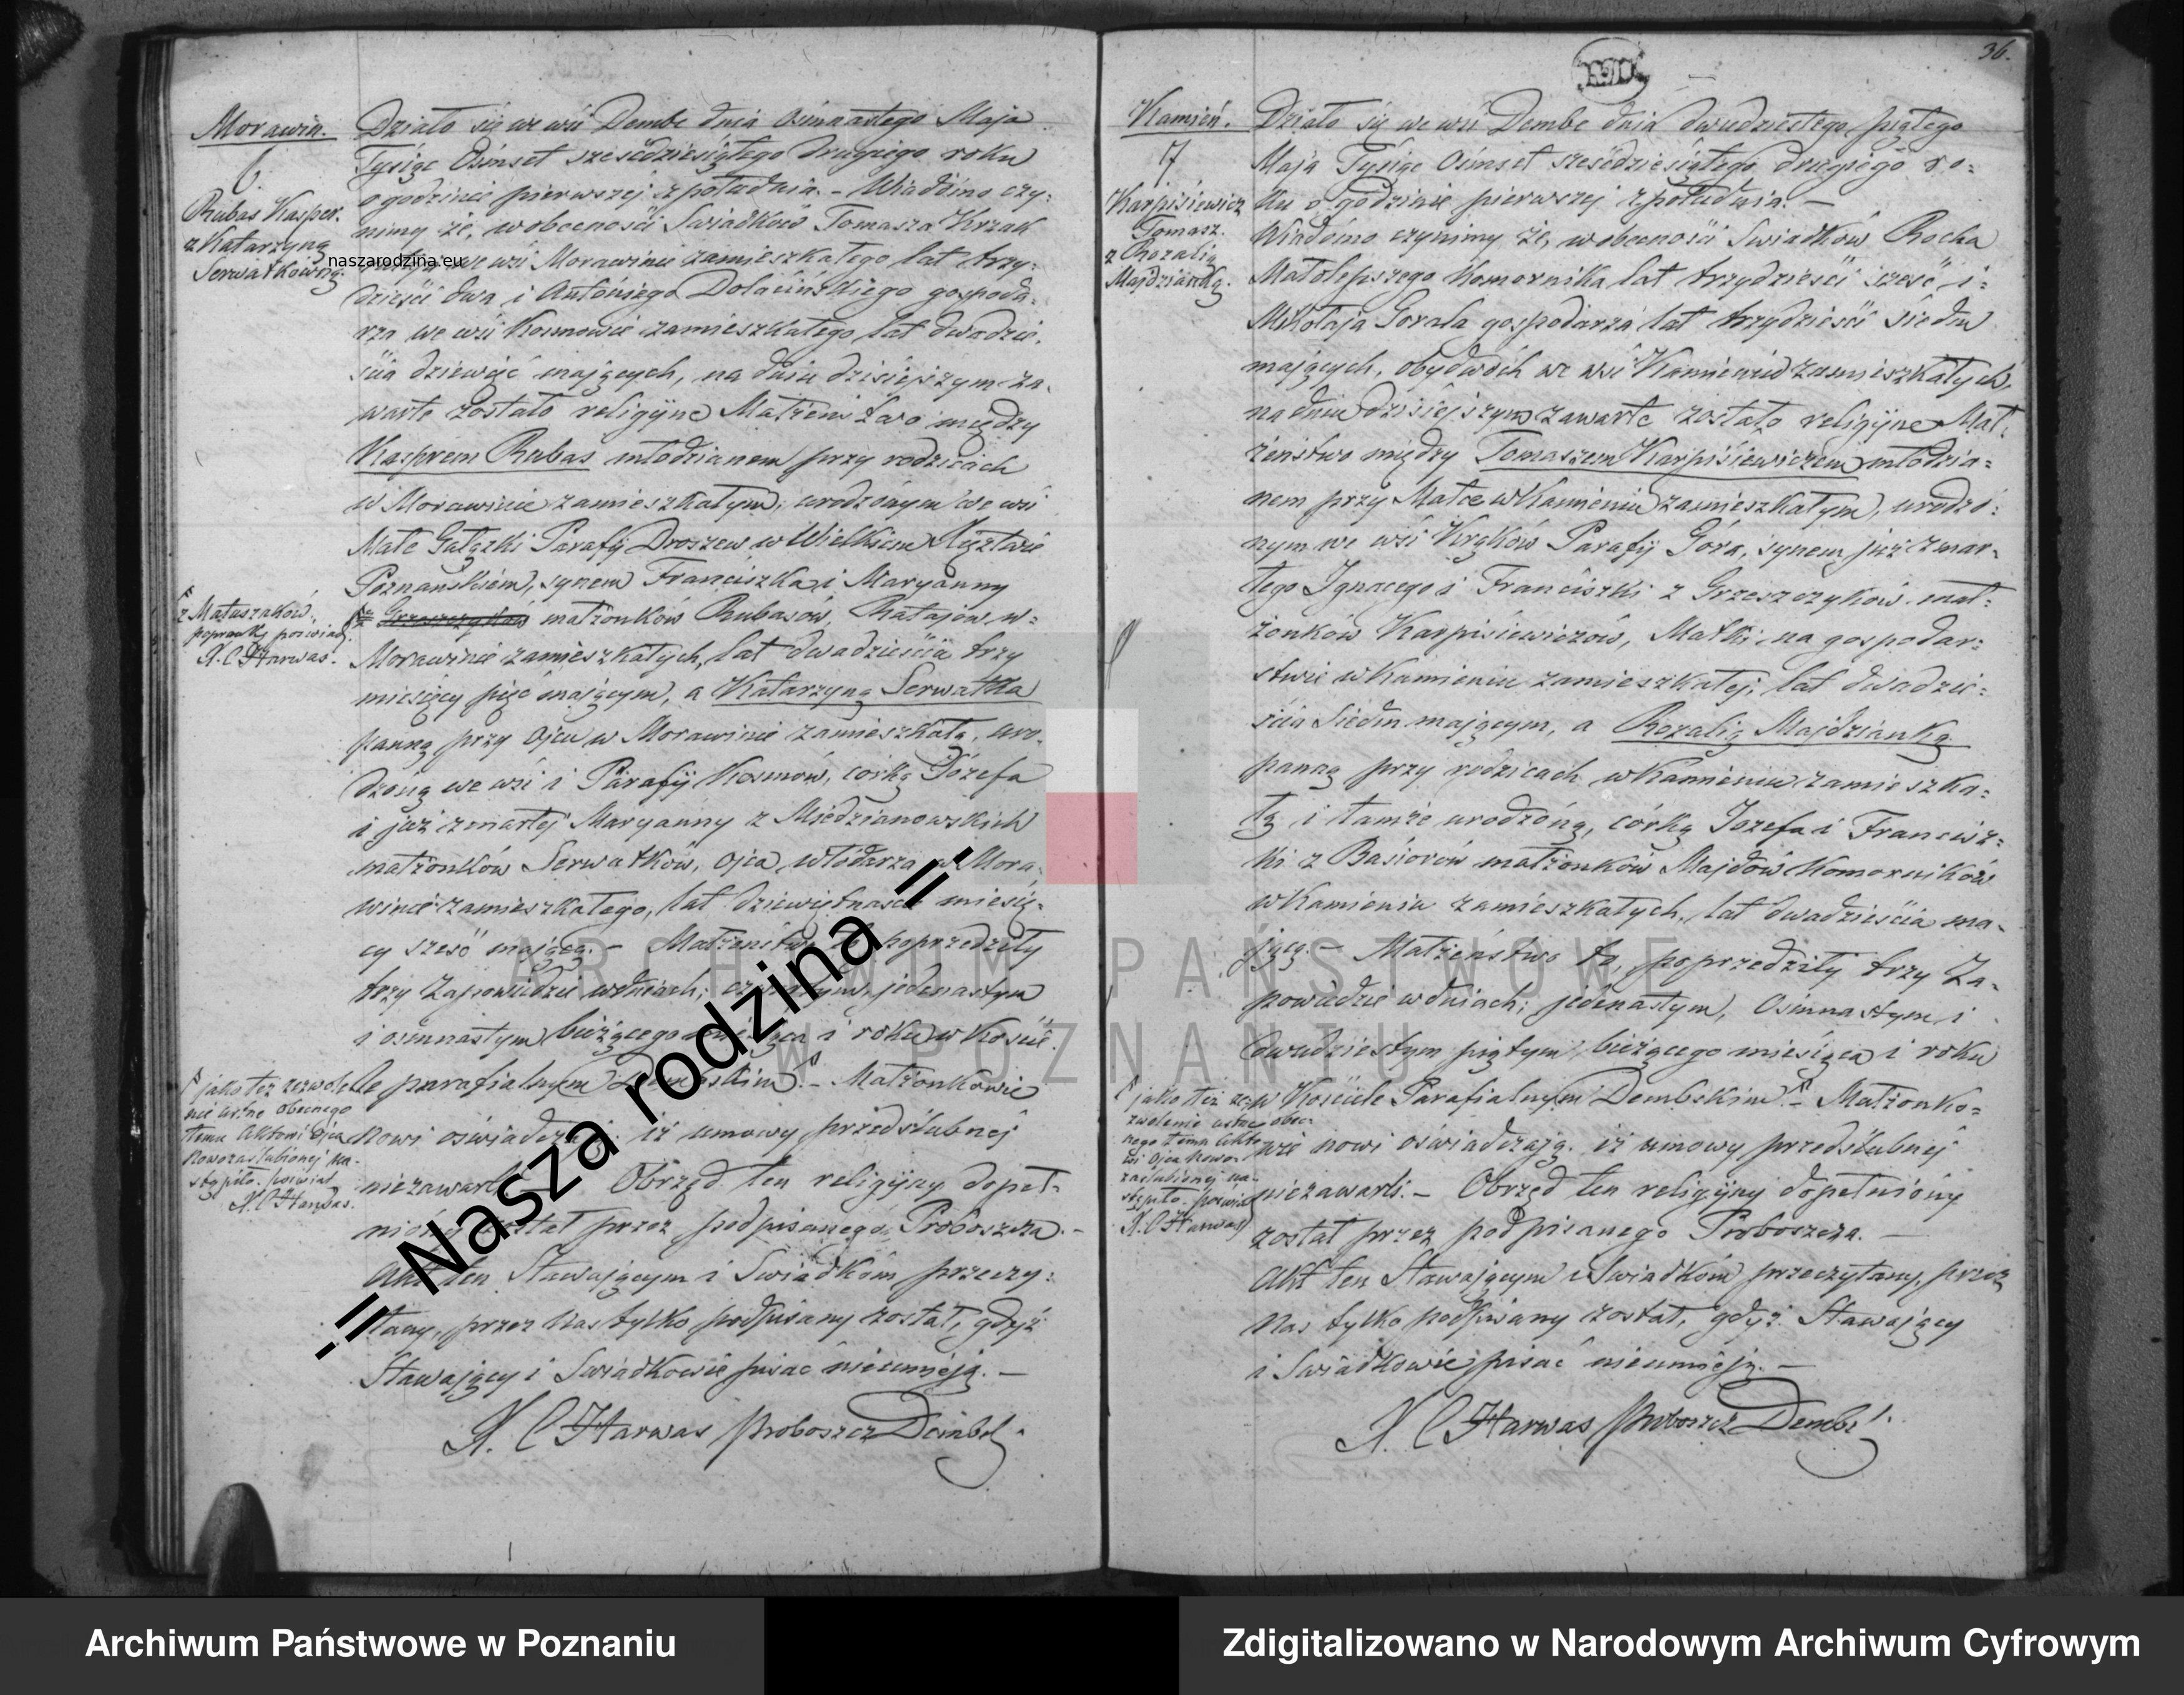 Morawin.
6.
Rubas Kasper.
z Katarzyną
Serwatkówną.
Działo się we wsi Dembe dnia Ośmnastego Maja
Tysiąc Ośmset sześćdziesiątego drugiego roku
o godzinie pierwszej z południa. – Wiadomo czy-
nimy że, w obecności Świadków Tomasza Krzak
we wsi Morawinie zamieszkałego lat trzy-
dzieści dwa i Antoniego Dolacińskiego gospoda-
rza we wsi Kosmowie zamieszkałego lat dwadzie-
ścia dziewięć mających, na dniu dzisiejszym za-
warte zostało religijne Małżeństwo między
Kasprem Rubas młodzianem przy rodzicach
w Morawinie zamieszkałym, urodzonym we wsi
Małe Gałązki Parafij Droszew w Wielkiem Xięztwie
Poznańskiem, synem Franciszka i Maryanny
małżonków Rubasów, Ratajów w-
Morawinie zamieszkałych, lat dwadzieścia trzy
miesięcy pięć mającym, a Katarzyną Serwatka
panną przy Ojcu w Morawinie zamieszkałą, uro-
dzoną we wsi i Parafij Kosmów, córką Józefa
i już zmarłej Maryanny z Miedzianowskich
małżonków Serwatków, Ojca, włódarza w Mora-
winie zamieszkałego, lat dziewiętnaście miesię-
cy sześć mającą. – Małżeństwo to poprzedziły
trzy Zapowiedzie w dniach; czwartym, jedenastym
i ośmnastym bieżącego miesiąca i roku w Koście-
le parafialnym Dembskim. – Małżonkowie
nowi oświadczają iż umowy przedślubnej
niezawarli. Obrzęd ten religijny dopeł-
niony został przez podpisanego Proboszcza. –
Akt ten Stawającym i Świadkom przeczy-
tany, przez Nas tylko podpisany został, gdyż
Stawający i Świadkowie pisać nieumieją. –
X. C Harwas Proboszcz Dembs.
z Matuszaków,
poprawkę poświad.
X. C Harwas.
jako też zezwole-
nie ustne obecnego
temu Aktowi Ojca
Nowozaślubionej na-
stąpiło. poświad
X. C Harwas.
36.
Kamień.
7
Karpisiewicz
Tomasz.
z Rozalią
Majdzianką.
Działo się we wsi Dembe dnia dwudziestego piątego
Maja Tysiąc Ośmset sześćdziesiątego drugiego ro-
ku o godzinie pierwszej z południa. –
Wiadomo czynimy że, w obecności Świadków Rocha
Małolepszego Komornika lat trzydzieści sześć i-
Mikołaja Gorala gospodarza lat trzydzieści siedm
mających, obydwóch we wsi Kamieniu zamieszkałych,
na dniu dzisiejszym zawarte zostało religijne Mał-
żeństwo między Tomaszem Karpisiewiczem młodzia-
nem przy Matce w Kamieniu zamieszkałym, urodzo-
nym we wsi Krąków Parafij Góra, synem już zmar-
łego Ignacego i Franciszki z Grzeszczyków mał-
żonków Karpisiewiczów, Matki na gospodar-
stwie w Kamieniu zamieszkałej, lat dwadzie-
ścia siedm mającym, a Rozalią Majdzianką
panną przy rodzicach w Kamieniu zamieszka-
łą i tamże urodzoną, córką Jozefa i Francisz-
ki z Basiorów małżonków Majdów Komorników
w Kamieniu zamieszkałych, lat dwadzieścia ma-
jącą. – Małżeństwo to, poprzedziły trzy Za-
powiedzie w dniach; jedenastym, Ośmnastym i
dwudziestym piątym bieżącego miesiąca i roku
w Kościele Parafialnym Dembskim. – Małżonko-
wie nowi oświadczają, iż umowy przedślubnej
niezawarli. – Obrzęd ten religijny dopełniony
został przez podpisanego Proboszcza. –
Akt ten Stawającym i Świadkom przeczytany, przez
Nas tylko podpisany został, gdyż Stawający
i Świadkowie pisać nieumieją. –
X. C Harwas Proboszcz Dembs.
jako też ze-
zwolenie ustne obec-
nego temu Akto-
wi Ojca Nowo-
zaślubionej na-
stąpiło. poświad
X. C Harwas
naszarodzina.eu
-= Nasza rodzina =-
ARCHIWUM PAŃSTWOWE
W POZNANIU
Archiwum Państwowe w Poznaniu
Zdigitalizowano w Narodowym Archiwum Cyfrowym